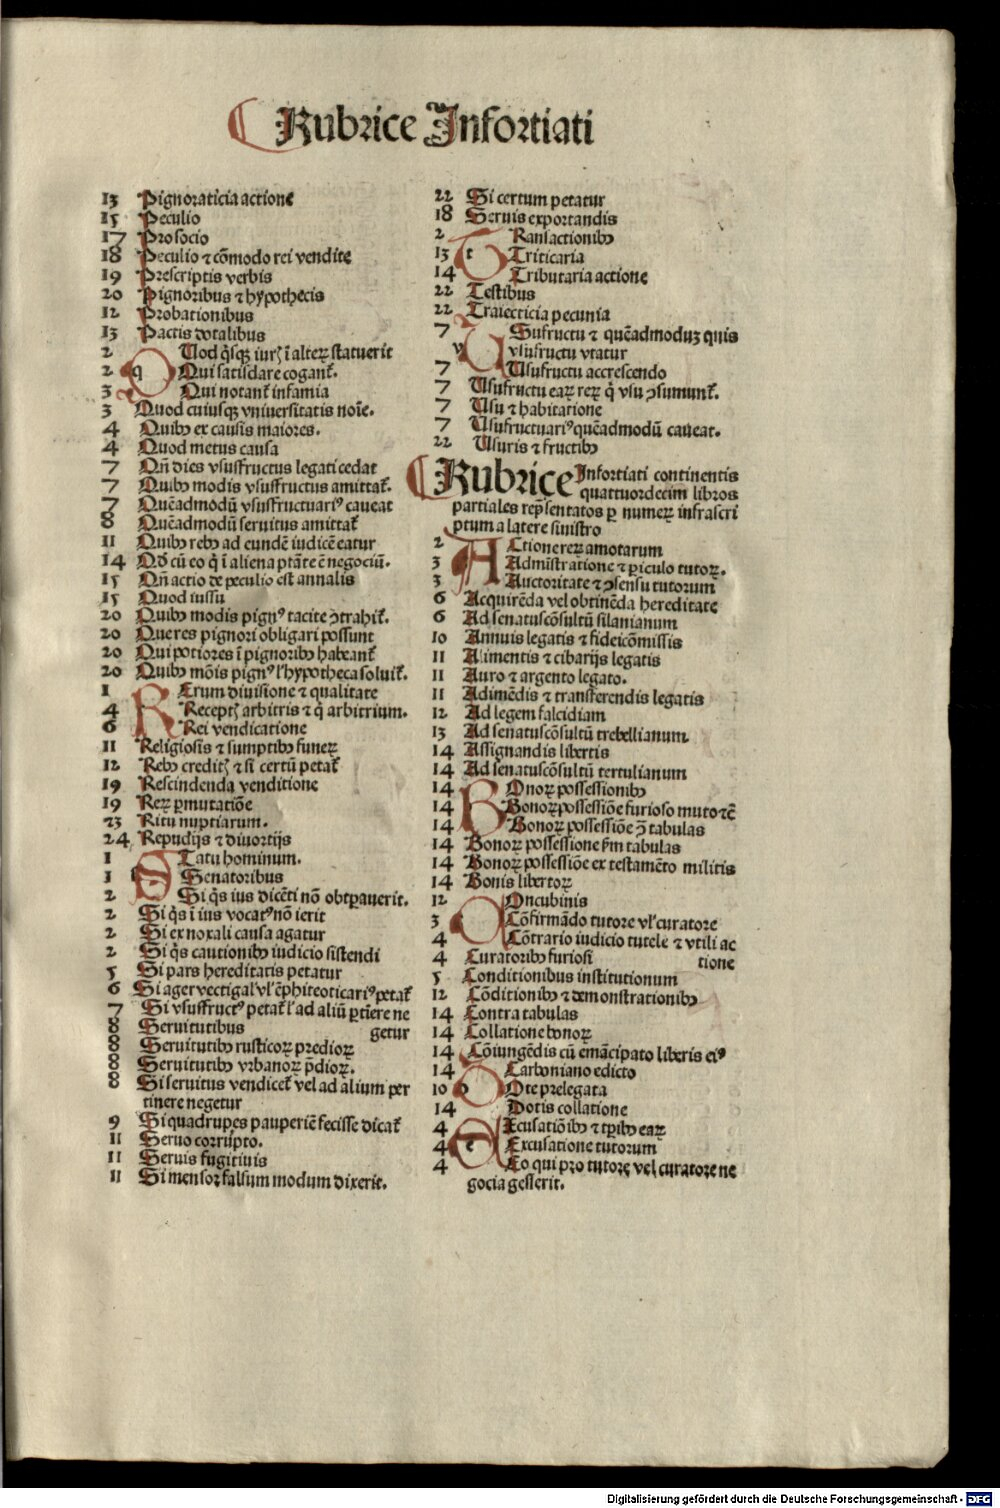 Rubrice Infortiati
13 Pignoraticia actione
15 Peculio
17 Pro socio
18 Peculio ⁊ cōmodo rei vendite
19 Prescriptis verbis
20 Pignoribus ⁊ hypothecis
12 Probationibus
13 Pactis dotalibus
2 Uod q̄sqꝫ iurꝭ ī alteꝝ statuerit
2 q Qui satisdare cogantꝭ.
3 Qui notantꝭ infamia
3 Quod cuiusqꝫ vniuersitatis noīe.
4 Quibꝰ ex causis maiores.
4 Quod metus causa
7 Qn̄ dies vsuffructus legati cedat
7 Quibꝰ modis vsuffructus amittatꝭ.
7 Quēadmodū vsuffructuariꝰ caueat
8 Quēadmodū seruitus amittatꝭ
11 Quibꝰ rebꝰ ad eundē iudicē eatur
14 Qd̓ cū eo q̄ ī aliena ptāte ē negociū.
15 Qn̄ actio de peculio est annalis
15 Quod iussu
20 Quibꝰ modis pignꝰ tacite ↄtrahitꝭ.
20 Que res pignori obligari possunt
20 Qui potiores ī pignoribꝰ habeantꝭ
20 Quibꝰ mōis pignꝰ l̓ hypotheca soluitꝭ.
1 Erum diuisione ⁊ qualitate
4 Receptꝭ arbitris ⁊ q̄ arbitrium.
6 Rei vendicatione
11 Religiosis ⁊ sumptibꝰ funeꝝ
12 Rebꝰ creditꝭ ⁊ si certū petatꝭ
19 Rescindenda venditione
19 Reꝝ ꝑmutatiōe
23 Ritu nuptiarum.
24 Repudijs ⁊ diuortijs
1 Tatu hominum.
1 Senatoribus
2 Si q̄s ius dicēti nō obtꝑauerit.
2 Si q̄s ī ius vocatꝰ nō ierit
2 Si ex noxali causa agatur
2 Si q̄s cautionibꝰ iudicio sistendi
5 Si pars hereditatis petatur
6 Si ager vectigal̓ vl̓ ēphiteoticariꝰ petatꝭ
7 Si vsuffructꝰ petatꝭ l̓ ad aliū ꝑtīere ne
8 Seruitutibus getur
8 Seruitutibꝰ rusticoꝝ predioꝝ
8 Seruitutibꝰ vrbanoꝝ p̄dioꝝ.
8 Si seruitus vendicetꝭ vel ad alium per
tinere negetur
9 Si quadrupes pauperiē fecisse dicatꝭ
11 Seruo corrupto.
11 Seruis fugitiuis
11 Si mensor falsum modum dixerit.
22 Si certum petatur
18 Seruis exportandis
2 Ransactionibꝰ
13 t Triticaria
14 Tributaria actione
22 Testibus
22 Traiecticia pecunia
7 Sufructu ⁊ quēadmoduꝫ quis
v vsufructu vtatur
7 Usufructu accrescendo
7 Usufructu eaꝝ reꝝ q̄ vsu ↄsumuntꝭ.
7 Usu ⁊ habitatione
7 Usufructuariꝰ quēadmodū caueat.
22 Usuris ⁊ fructibꝰ
Rubrice Infortiati continentis
quattuordecim libros
partiales rep̄sentatos ꝑ numeꝝ infrascri
ptum a latere sinistro
2 Ctione reꝝ amotarum
3 Admīstratione ⁊ ꝑiculo tutoꝝ.
3 Auctoritate ⁊ ↄsensu tutorum
6 Acquirēda vel obtinēda hereditate
6 Ad senatuscōsultū silanianum
10 Annuis legatis ⁊ fideicōmissis
11 Alimentis ⁊ cibarijs legatis
11 Auro ⁊ argento legato.
11 Adimēdis ⁊ transferendis legatis
12 Ad legem falcidiam
13 Ad senatuscōsultū trebellianum
14 Assignandis libertis
14 Ad senatuscōsultū tertulianum
14 Onoꝝ possessionibꝰ
14 Bonoꝝ possessiōe furioso muto ⁊cē
14 Bonoꝝ possessiōe ↄ̄ tabulas
14 Bonoꝝ possessione ẜm tabulas
14 Bonoꝝ possessiōe ex testamēto militis
14 Bonis libertoꝝ
12 Oncubinis
3 Cōfirmādo tutore vl̓ curatore
4 Cōtrario iudicio tutele ⁊ vtili ac
4 Curatoribꝰ furiosi tione
5 Conditionibus institutionum
12 Cōditionibꝰ ⁊ demonstrationibꝰ
14 Contra tabulas
14 Collatione bonoꝝ
14 Cōiungēdis cū emācipato liberis eiꝰ
14 Carboniano edicto
10 Ote prelegata
14 Dotis collatione
4 Xcusatiōibꝰ ⁊ tꝑibꝰ eaꝝ
4 e Excusatione tutorum
4 Eo qui pro tutore vel curatore ne
gocia gesserit.
Digitalisierung gefördert durch die Deutsche Forschungsgemeinschaft - DFG